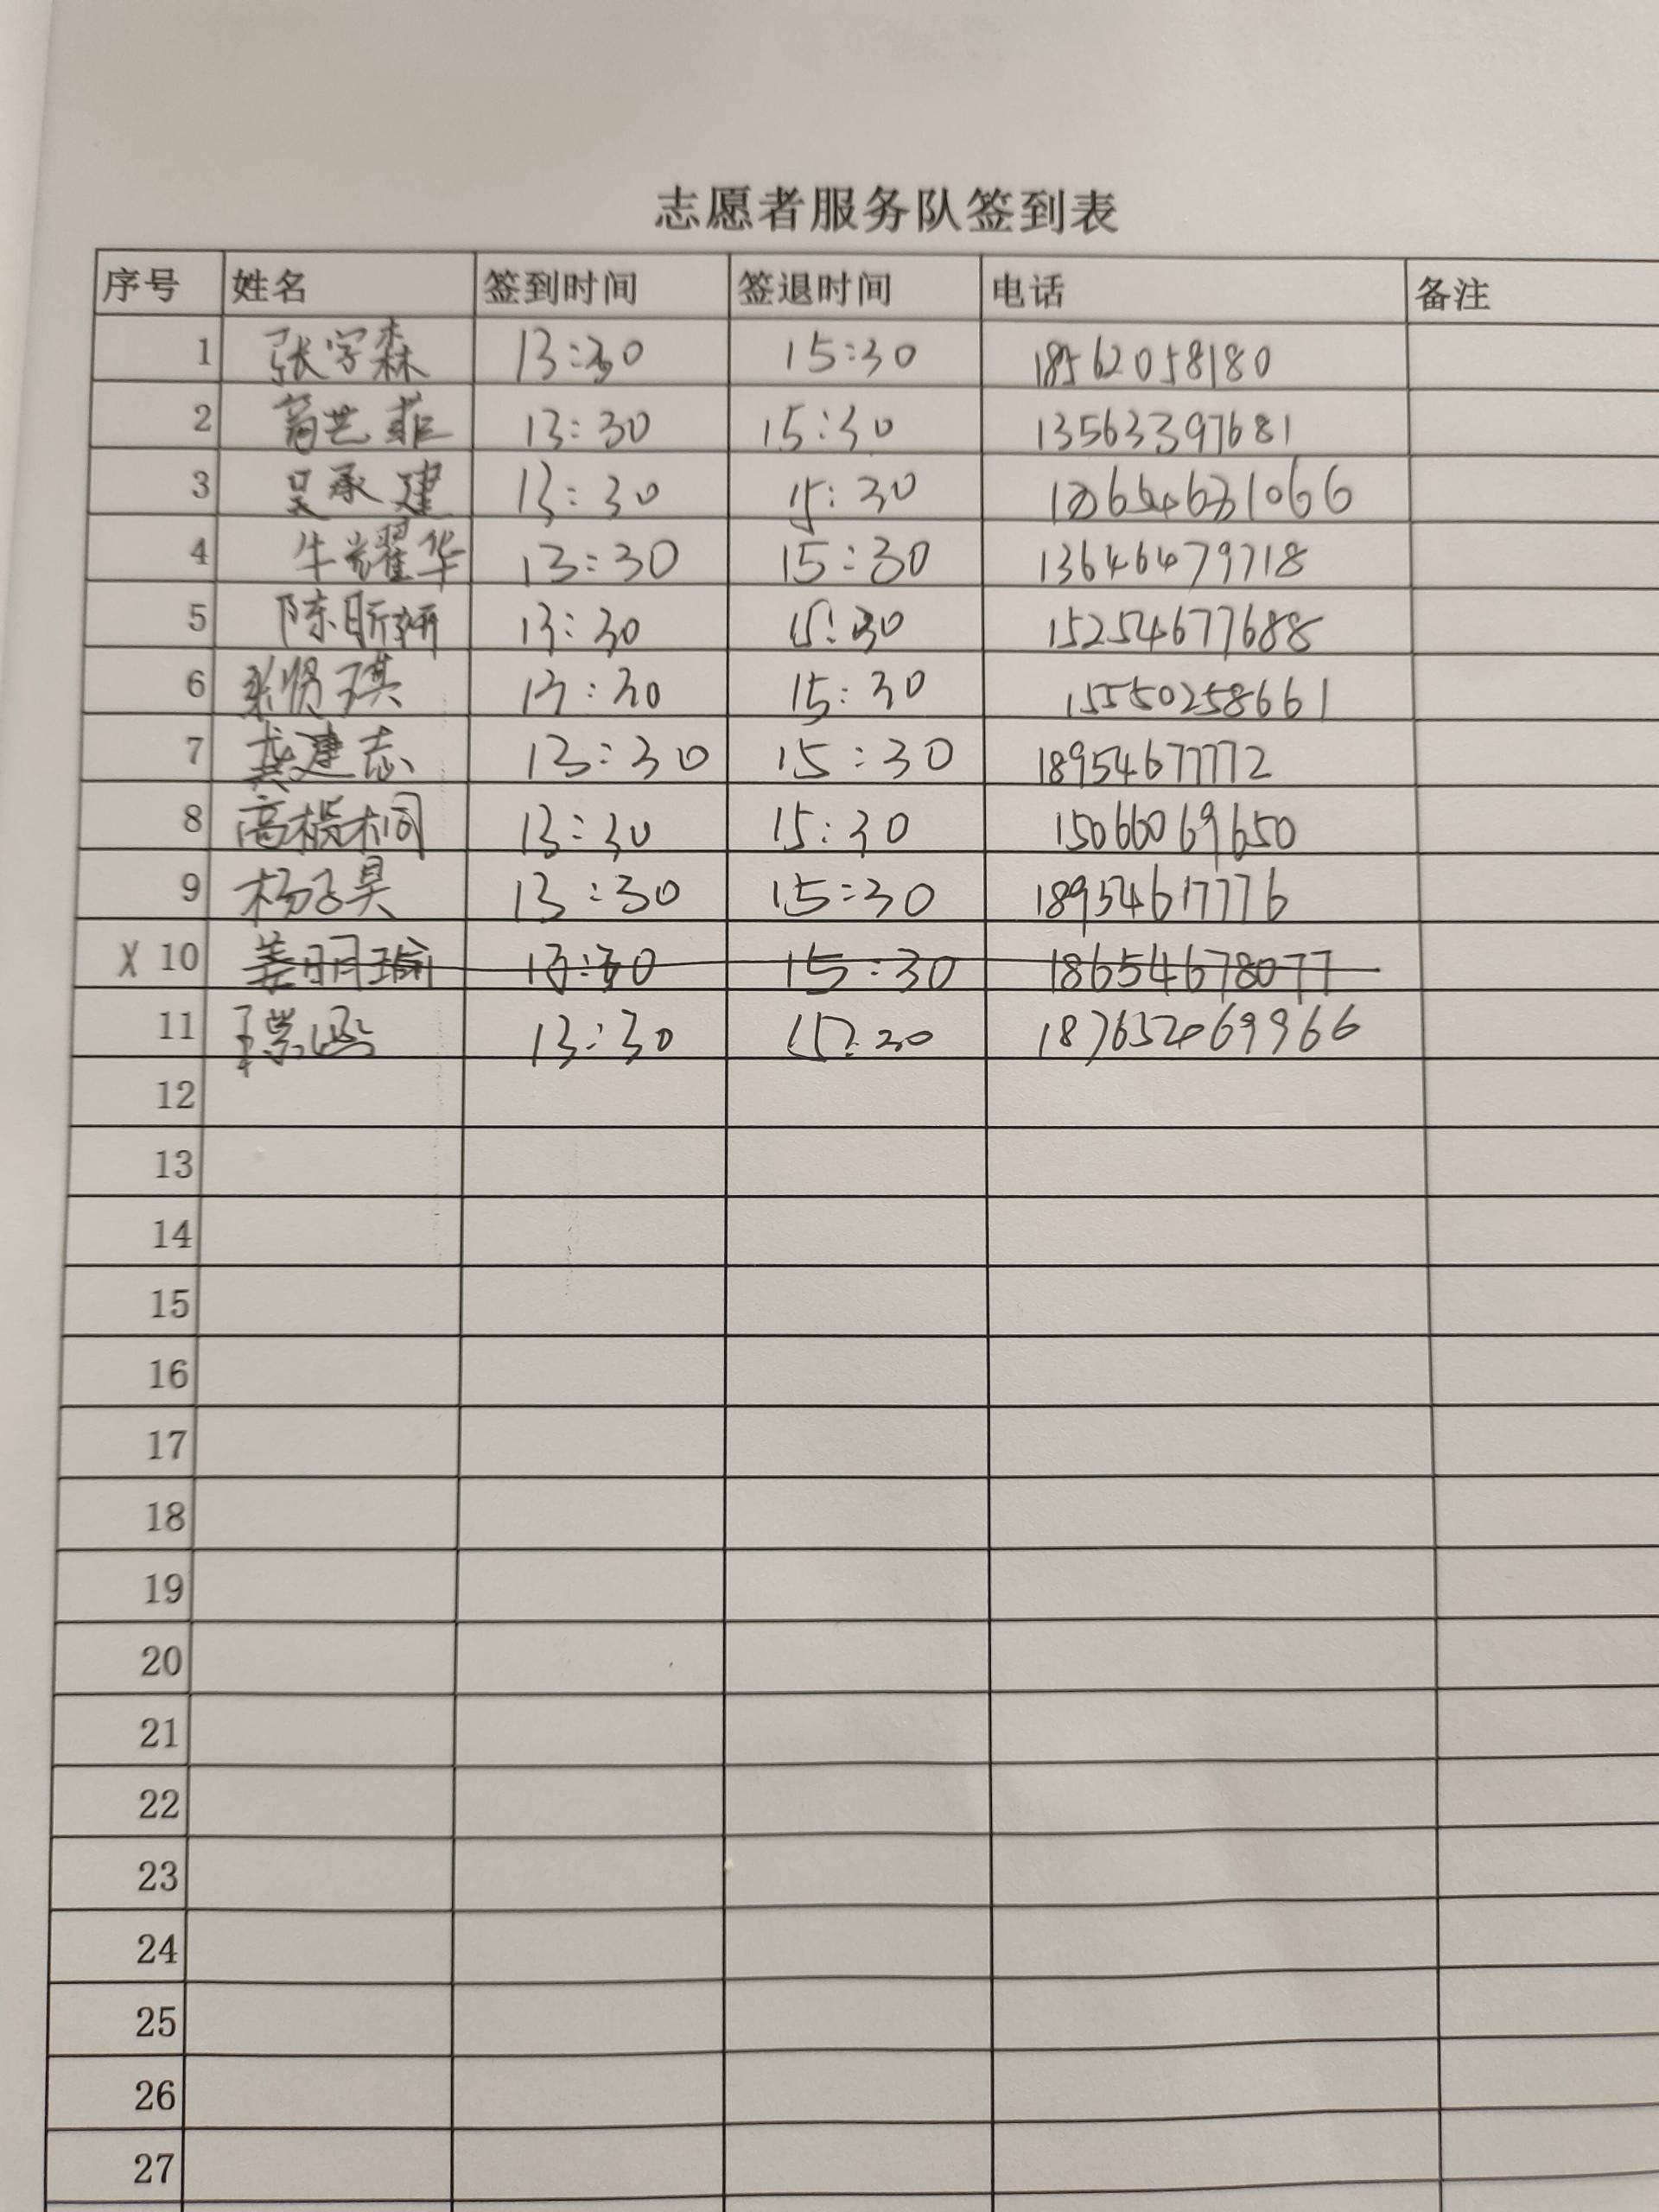 志愿者服务队签到表
序号 姓名 签到时间 签退时间 电话 备注
1 张宇森 13:30 15:30 18562058180
2 13:30 15:30 13563397681
3 吴承建 13:30 15:30
4 牛耀华 13:30 15:30 13646479718
5 陈昕妍 13:30 15:30 15254677688
6 13:30 15:30 15550258661
7 龚建志 13:30 15:30 18954677772
8 13:30 15:30 15066069650
9 杨子昊 13:30 15:30 18954617776
X 10 姜明瑜 13:30 15:30 18654678077
11 13:30 15:30
12
13
14
15
16
17
18
19
20
21
22
23
24
25
26
27